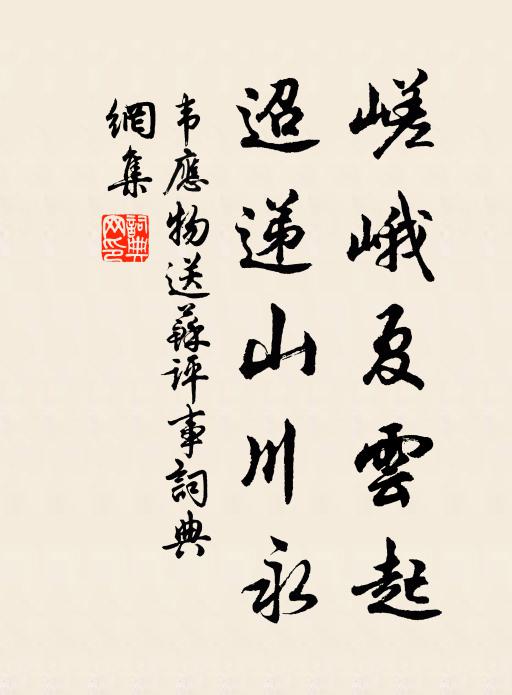 嵯峨夏雲起
迢递山川永
韦應物送蘇評事詞典
網集
詞典
网印